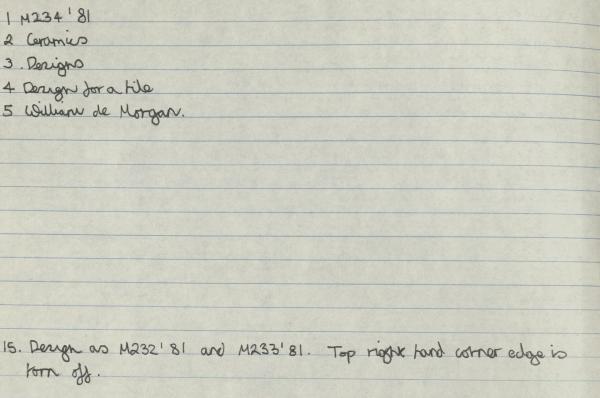 1 M234'81
2 Ceramics
3. Designs
4 Design for a tile
5 William de Morgan.
15. Design as M232'81 and M233'81. Top right hand corner edge is
torn off.